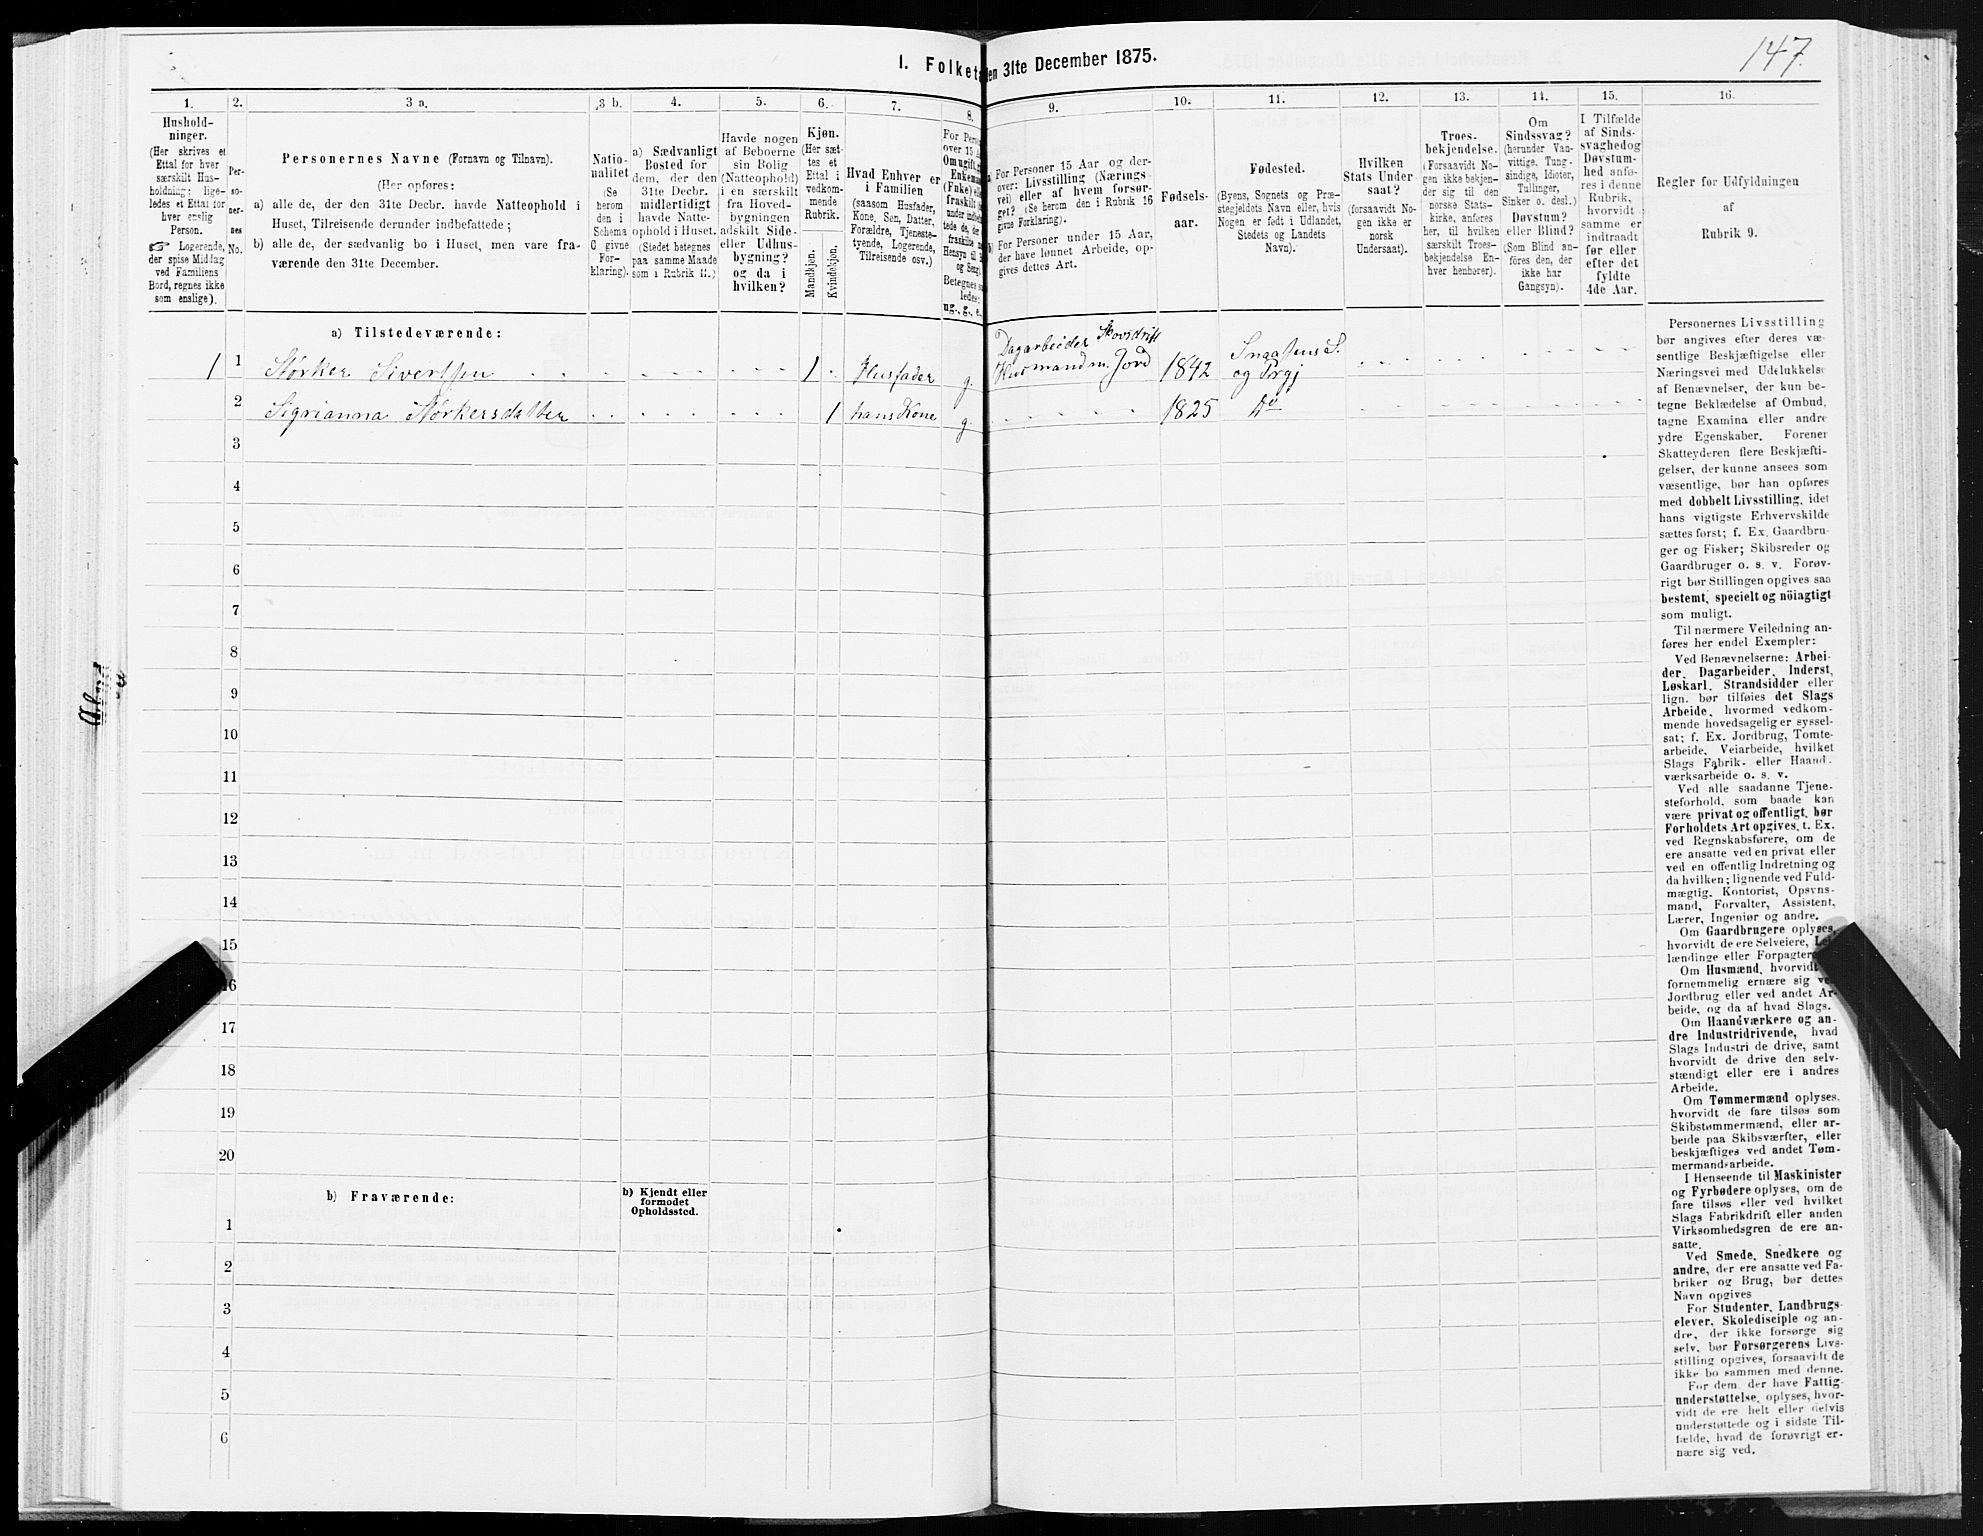 147.
I. Folketa den 31te December 1875.
1.
2.
3 a.
3 b.
4.
5.
6.
7.
8.
9.
10.
11.
12.
13.
14.
15.
16.
Hushold-
ninger.
(Her skrives et
Ettal for hver
særskilt Hus-
holdning; lige-
ledes et Ettal for
hver enslig
Person.
☞ Logerende,
der spise Middag
ved Familiens
Bord, regnes ikke
som enslige).
Per-
so-
ner-
nes
No.
Personernes Navne (Fornavn og Tilnavn).
(Her opføres:
a) alle de, der den 31te Decbr. havde Natteophold i
Huset, Tilreisende derunder indbefattede;
b) alle de, der sædvanlig bo i Huset, men vare fra-
værende den 31te December.
Natio-
nalitet
(Se
herom
den i
Schema
C givne
For-
klaring).
a) Sædvanligt
Bosted for
dem, der den
31te Decbr.
midlertidigt
havde Natte-
ophold i Huset.
(Stedet betegnes
paa samme Maade
som i Rubrik 11.)
Havde nogen
af Beboerne
sin Bolig
(Natteophold)
i en særskilt
fra Hoved-
bygningen
adskilt Side-
eller Udhus-
bygning?
og da i
hvilken?
Kjøn.
(Her sæt-
tes et
Ettal i
vedkom-
mende
Rubrik.
Mandkjøn.
Kvindekjøn.
Hvad Enhver er
i Familien
(saasom Husfader,
Kone, Søn, Datter,
Forældre, Tjeneste-
tyende, Logerende,
Tilreisende osv.)
For Perso
over 15 A
Om ugift,
Enkema
(Enke) el
fraskilt
under indb
tede de, de
fraskilte
Hensyn til
og Seng).
Betegnes s
ledes:
ug., g., e.,
a) For Personer 15 Aar og der-
over: Livsstilling (Nærings-
vei) eller af hvem forsør-
get? (Se herom den i Rubrik 16
givne Forklaring).
b) For Personer under 15 Aar,
der have lønnet Arbeide, op-
gives dettes Art.
Fødsels-
aar.
Fødested.
(Byens, Sognets og Præ-
stegjeldets Navn eller, hvis
Nogen er født i Udlandet,
Stedets og Landets
Navn).
Hvilken
Stats Under-
saat?
(forsaavidt No-
gen ikke er
norsk
Undersaat).
Troes-
bekjendelse.
(Forsaavidt No-
gen ikke bekjen-
der sig til den
norske Stats-
kirke, anføres
her, til hvilken
særskilt Troes-
bekjendelse En-
hver henhører).
Om
Sindssvag?
(herunder Van-
vittige, Tung-
sindige, Idioter,
Tullinger,
Sinker o. desl.)
Døvstum?
eller Blind?
(Som Blind an-
føres den, der
ikke har
Gangsyn).
I Tilfælde
af Sinds-
svaghed og
Døvstum-
hed anfø-
res i denne
Rubrik,
hvorvidt
samme er
indtraadt
før eller
efter det
fyldte
4de Aar.
Regler for Udfyldningen
af
Rubrik 9.
a) Tilstedeværende:
1 1 Størker Sivertssen 1 Husfader g. Dagarbeider Skovdrift
Husmand m. Jord 1842 Snaasens S.
og Prgj
2 Sigrianna Størkersdatter 1 hans Kone g. 1825 Do
3
4
5
6
7
8
9
10
11
12
13
14
15
16
17
18
19
20
b) Fraværende:
b) Kjendt eller
formodet
Opholdssted.
1
2
3
4
5
6
Personernes Livsstilling
bør angives efter deres væ-
sentlige Beskjæftigelse eller
Næringsvei med Udelukkelse
af Benævnelser, der kun be-
tegne Beklædelse af Ombud,
tagne Examina eller andre
ydre Egenskaber. Forener
Skatteyderen flere Beskjæfti-
gelser, der kunne ansees som
væsentlige, bør han opføres
med dobbelt Livsstilling, idet
hans vigtigste Erhvervskilde
sættes først; f. Ex. Gaardbru-
ger og Fisker; Skibsreder og
Gaardbruger o. s. v. Forøv-
rigt bør Stillingen opgives saa
bestemt, specielt og nöiagtigt
som muligt.
Til nærmere Veiledning an-
føres her endel Exempler:
Ved Benævnelserne: Arbei-
der, Dagarbeider, Inderst,
Løskarl, Strandsidder eller
lign. bør tilføies det Slags
Arbeide, hvormed vedkom-
mende hovedsagelig er syssel-
sat; f. Ex. Jordbrug, Tomte-
arbeide, Veiarbeide, hvilket
Slags Fabrik- eller Haand-
værksarbeide o. s. v.
Ved alle saadanne Tjene-
steforhold, som baade kan
være privat og offentligt, bør
Forholdets Art opgives, t. Ex.
ved Regnskabsførere, om de
ere ansatte ved en privat eller
ved en offentlig Indretning og
da hvilken; lignende ved Fuld-
mægtig, Kontorist, Opsyns-
mand, Forvalter, Assistent,
Lærer, Ingeniør og andre.
Om Gaardbrugere oplyses,
hvorvidt de ere Selveiere, Lei-
lændinge eller Forpagtere.
Om Husmænd, hvorvidt
fornemmelig ernære sig ved
Jordbrug eller ved andet Ar-
beide, og da af hvad Slags.
Om Haandværkere og an-
dre Industridrivende, hvad
Slags Industri de drive, samt
hvorvidt de drive den selv-
stændigt eller ere i andres
Arbeide.
Om Tømmermænd oplyses,
hvorvidt de fare tilsøs som
Skibstømmermænd, eller ar-
beide paa Skibsværfter, eller
beskjæftiges ved andet Tøm-
mermandsarbeide.
I Henseende til Maskinister
og Fyrbødere oplyses, om de
fare tilsøs eller ved hvilket
Slags Fabrikdrift eller anden
Virksomhedsgren de ere an-
satte.
Ved Smede, Snedkere og
andre, der ere ansatte ved Fa-
briker og Brug, bør dettes
Navn opgives
For Studenter, Landbrugs-
elever, Skoledisciple og an-
dre, der ikke forsørge sig
selv, bør Forsørgerens Livs-
stilling opgives, forsaavidt de
ikke bo sammen med denne.
For dem, der have Fattig-
understøttelse, oplyses, hvor-
vidt de ere helt eller delvis
understøttede og i sidste Til-
fælde, hvad de forøvrigt er-
nære sig ved.